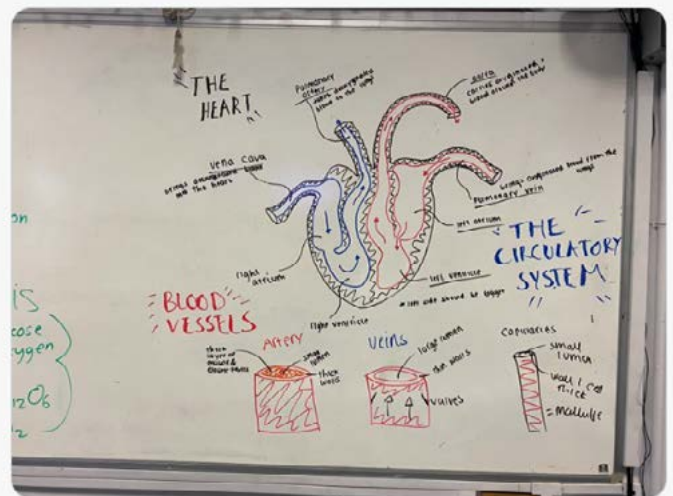 THE
HEART
Pulmonary
artery
blood to the lungs
aorta
carries oxygenated
blood around the body
vena cava
into the heart
brings oxygenated blood from the
lungs
Pulmonary vein
left atrium
THE
CIRCULATORY
SYSTEM
right
atrium
left ventricle
* left side should be bigger
right ventricle
BLOOD
VESSELS
Artery
thick
layer of
muscle &
elastic fibres
small
lumen
thick
walls
Veins
large lumen
thin walls
valves
Capillaries
small
lumen
wall 1 cell
thick
on
is
cose
xygen
12O6
2